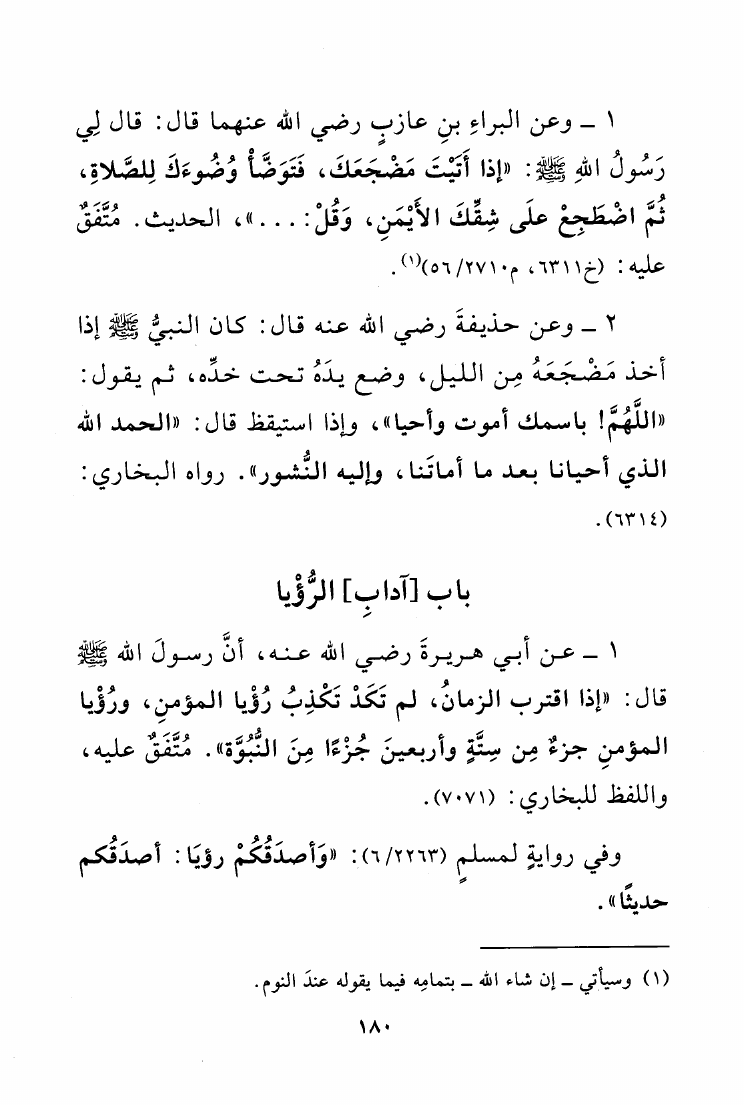 ١ ــ وعن البراءِ بنِ عازبٍ رضي الله عنهما قال: قال لِي
رَسُولُ اللهِ ﷺ: «إذا أَتَيْتَ مَضْجَعَكَ، فَتَوَضَّأْ وُضُوءَكَ لِلصَّلاةِ،
ثُمَّ اضْطَجِعْ علَى شِقِّكَ الأَيْمَنِ، وَقُلْ: . . .»، الحديث. مُتَّفَقٌ
عليه: (خ٦٣١١، م٥٦/٢٧١٠)(١).
٢ ــ وعن حذيفةَ رضي الله عنه قال: كان النبيُّ ﷺ إذا
أخذ مَضْجَعَهُ مِن الليل، وضع يدَهُ تحت خدِّه، ثم يقول:
«اللَّهُمَّ! باسمك أموت وأحيا»، وإذا استيقظ قال: «الحمد الله
الذي أحيانا بعد ما أماتَنا، وإليه النُّشور». رواه البخاري:
(٦٣١٤).
باب [آدابِ] الرُّؤْيا
١ ــ عن أبي هريرةَ رضي الله عنه، أنَّ رسولَ الله ﷺ
قال: «إذا اقترب الزمانُ، لم تَكَدْ تَكْذِبُ رُؤْيا المؤمنِ، ورُؤْيا
المؤمنِ جزءٌ مِن سِتَّةٍ وأربعينَ جُزْءًا مِنَ النُّبُوَّة». مُتَّفَقٌ عليه،
واللفظ للبخاري: (٧٠٧١).
وفي روايةٍ لمسلمٍ (٦/٢٢٦٣): «وَأصدَقُكُمْ رؤيَا: أصدَقُكم
حديثًا».
(١) وسيأتي ــ إن شاء الله ــ بتمامِه فيما يقوله عندَ النوم.
١٨٠